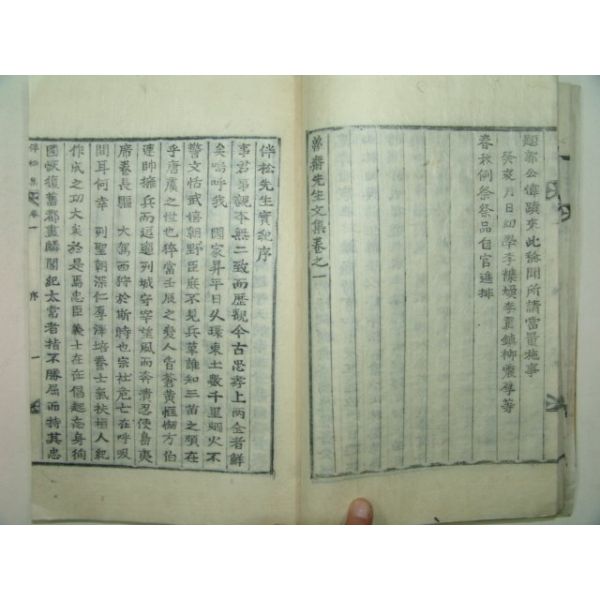 題郭公偉蹟來此稔聞所請當量施事
癸亥月日幼學李
春秋例祭祭品自官進排
魯齋先生文集卷之一
伴松先生實紀序
事君事親本無二致而歷觀今古忠孝上兩全者鮮
矣嗚呼我 國家昇平日久環東土數千里烟火不
警文恬武嬉朝野臣庶不見兵革誰知三苗之頑在
乎唐虞之世也猝當壬辰之變人皆蒼黃恇㥘方伯
連帥擁兵而逗遛列城守宰望風而奔潰忍使島夷
席卷長驅 大駕西狩於斯時也宗社危亡在呼吸
間耳何幸 列聖朝深仁厚澤培養士氣扶植人紀
作成之功大矣於是焉忠臣義士在在倡起忘身徇
國恢復舊都畫麟閣紀太常者指不勝屈而特其忠
伴松集 卷一 序 一